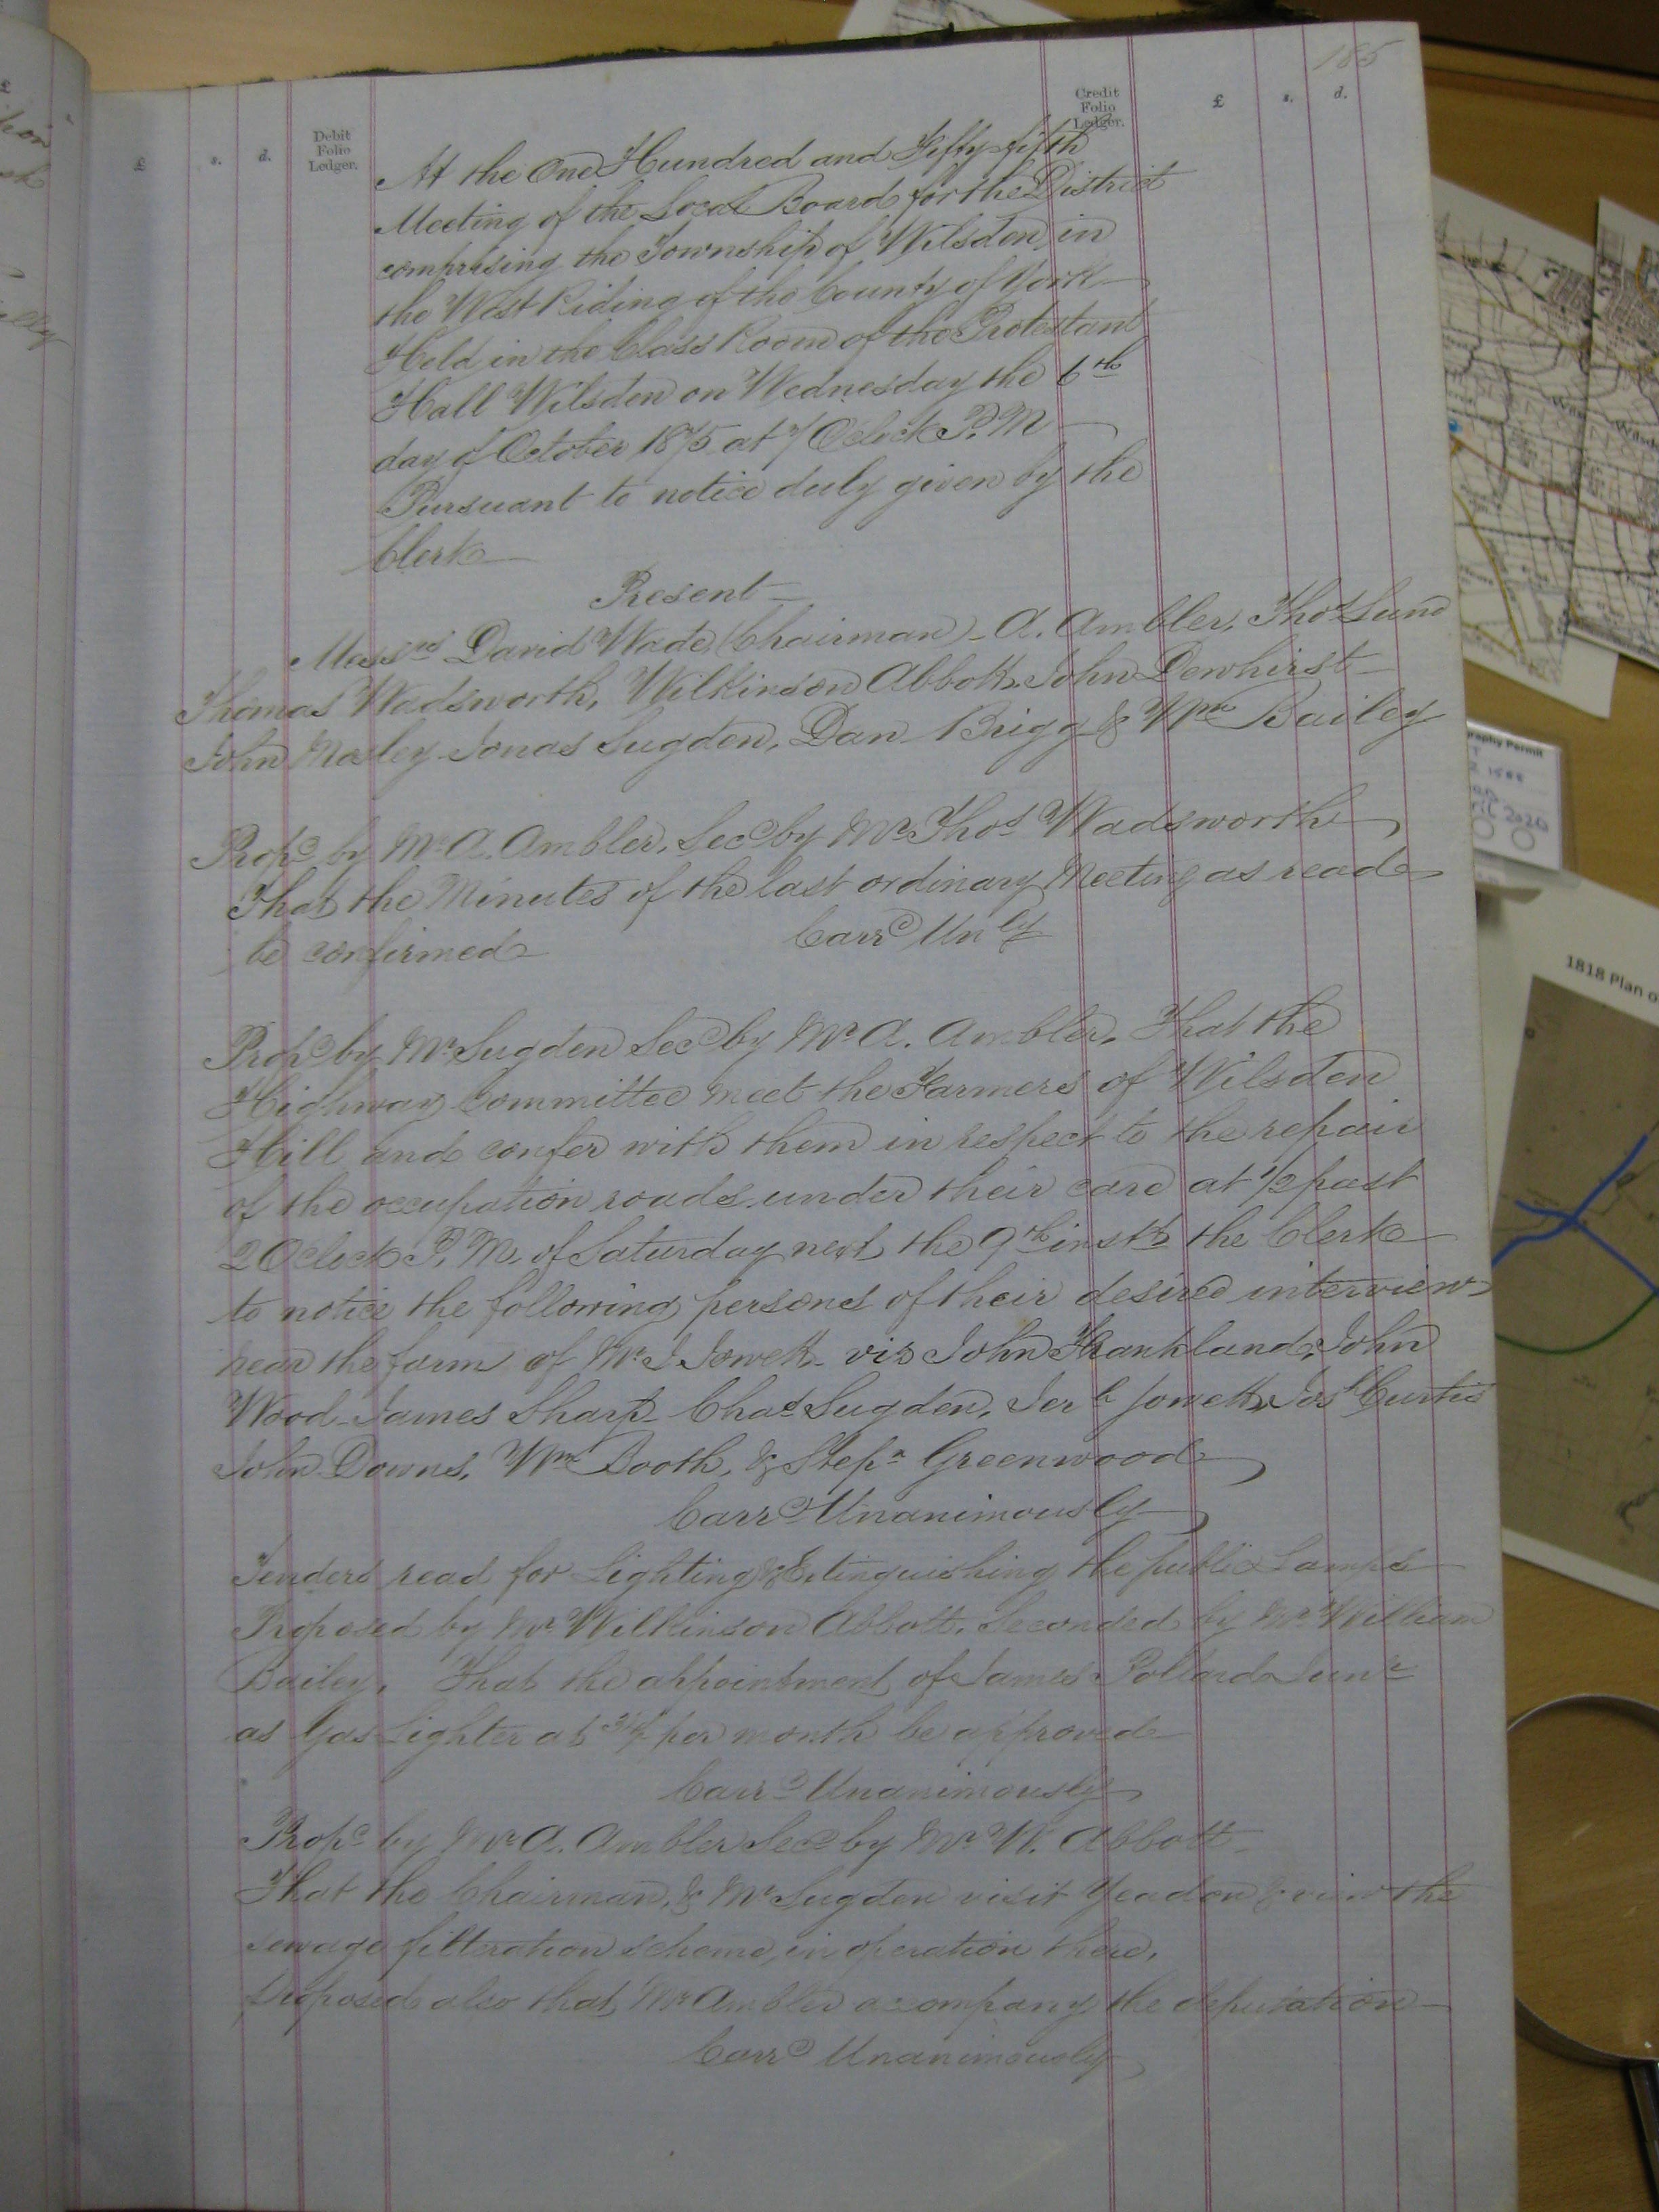 185
£ s. d. Debit Folio Ledger. Credit Folio Ledger. £ s. d.
At the One Hundred and Fifty fifth
Meeting of the Local Board for the District
comprising the Township of Wilsden, in
the West Riding of the County of York
Held in the Class Room of the Protestant
Hall Wilsden on Wednesday the 6th
day of October 1875 at 7 Oclock P.M
Pursuant to notice duly given by the
Clerk
Present
Messrs David Wade (Chairman) A. Ambler, Thos Lund
Thomas Wadsworth, Wilkinson Abbott, John Dewhirst
John Mosley Jonas Sugden, Dan Brigg & Wm Bailey
Propd by Mr A. Ambler, Secd by Mr Thos Wadsworth
That the Minutes of the last ordinary Meeting as read
be confirmed Carrd Unly
Propd by Mr Sugden Secd by Mr A. Ambler, That the
Highway Committee meet the Farmers of Wilsden
Hill and confer with them in respect to the repair
of the occupation roads under their care at 1/2 past
2 Oclock P.M. of Saturday next the 9th inst the Clerk
to notice the following persons of their desired interview
near the farm of Mr J Jowett vis John Frankland, John
Wood James Sharp Chas Sugden, Jerh Jowett, Josh Curtis
John Downs, Wm Booth, & Stepn Greenwood
Carrd Unanimously
Tenders read for Lighting & Extinguishing the public Lamps
Proposed by Mr Wilkinson Abbott, Seconded by Mr William
Bailey, That the appointment of James Pollard Junr
as Gas Lighter at per month be approved
Carrd Unanimously
Propd by Mr A. Ambler Secd by Mr W. Abbott
That the Chairman, & Mr Sugden visit Yeadon & view the
sewage filteration scheme, in operation there,
proposed also that Mr Ambler accompany the deputation
Carrd Unanimously
1818 Plan o